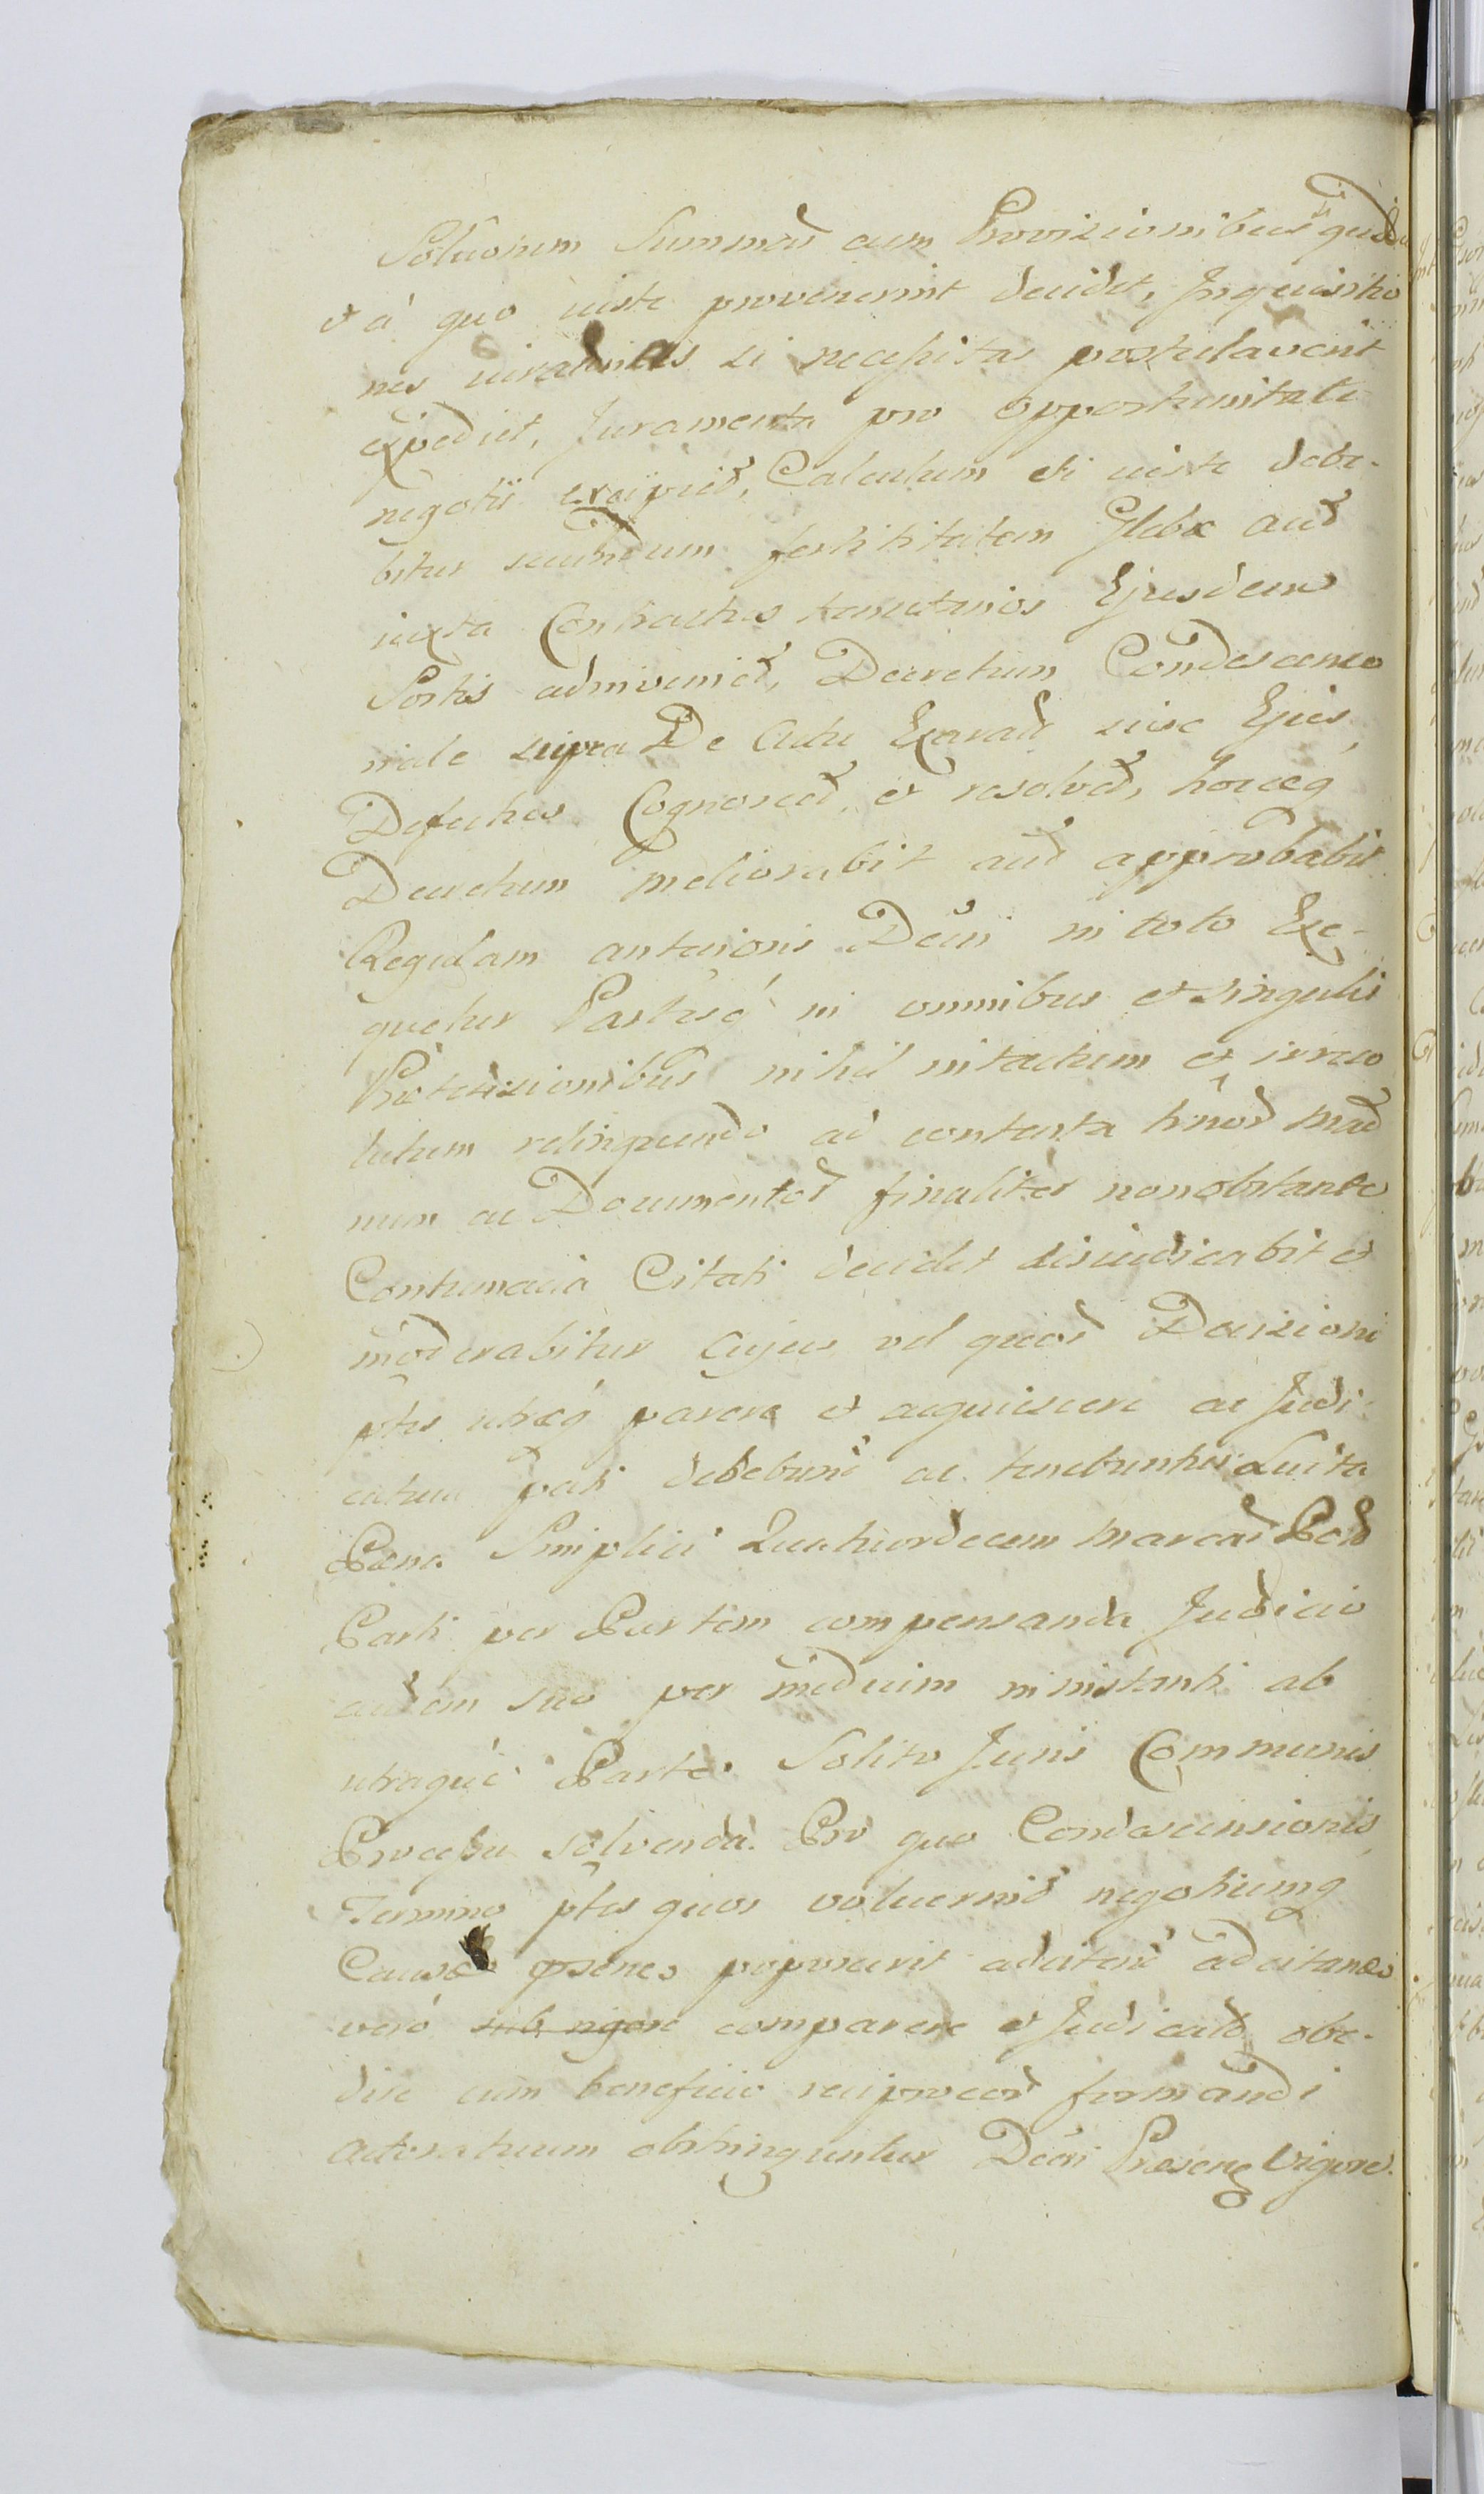 Solucionum Summar cum Provisionibus si quæd
et à quo iuste provenerint decidet, Inquisitio
nes iuratorias si necessitas postulaverit
expediet, Juramenta pro opportunitate
negotii excipiet, Calculum si iuste debe-
bitur secundum fertilitatem Glebæ aut
iuxta Contractus tenutarios Ejusdem
Sortis adinveniet, Decretum Condescenso
riale supra De Actu Exarat sive Ejus
Defectus Cognoscet, et resolvet, hocceq
Decretum meliorabit aut approbabit
Regulam anterioris Decri in toto Exe-
quetur Partesq́ in omnibus et singulis
Prætensionibus nihil intactum et irreso
lutum relinquendo ad contenta hinod Mad
num ac Documentor finaliter nonobstante
Contumacia Citati decidet diiudicabit et
moderabitur cujus vel quor Decisioni
ptes utræq́ parere et acquiescere ac Judi-
catum pati debebunt ac tenebuntur Luita
Pæna Simplici Quatuordecem Marcar Pol
Parti per Partem compensanda Judicio
autem suo per medium ministranti ab
utraque Parte. Solito Juris Communis
Processu solvenda. Pro quo Condescensionis
Termino ptes quos voluerint negotiumq
Causæ præsens poposcerit adcitare adcitandi
vero sub rigore comparere et Judicatis obe-
dire cum beneficio reciprocor formandi
Actoratuum obstringuntur Decri Præsenc Vigore.